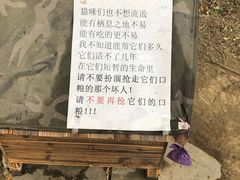 猫咪们也不想流浪
能有栖息之地不易
能有吃的更不易
我不知道能帮它们多久
它们活不了几年
在它们短暂的生命里
请不要扮演抢走它们口
粮的那个坏人!
请不要再抢它们的口
粮!!!